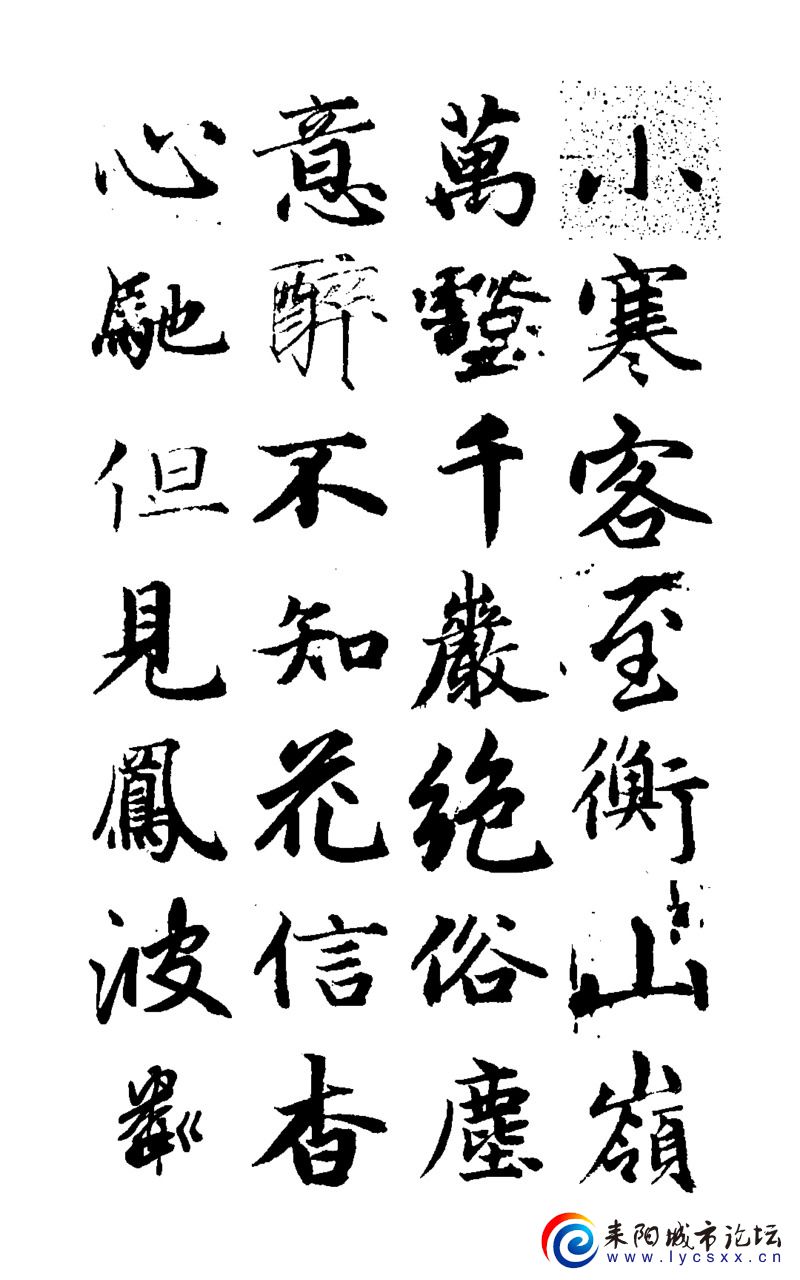 小寒客至衡山嶺
萬壑千巖絶俗塵
意醉不知花信杳
心馳但見鳳波粼
耒阳城市论坛
www.lycsxx.cn